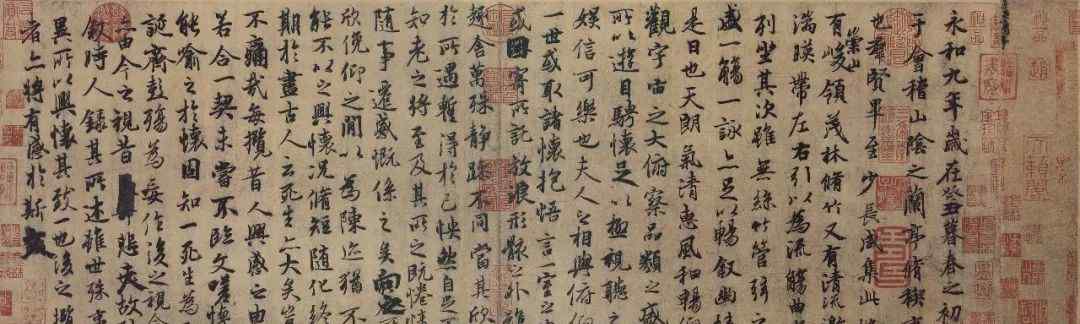 永和九年歲在癸丑暮春之初
于會稽山陰之蘭亭脩稧
也羣賢畢至少長咸集此
有崇山峻領茂林脩竹又有清流
湍暎帶左右引以為流觴曲
列坐其次雖無絲竹管弦之
盛一觴一詠亦足以暢敘幽
是日也天朗氣清惠風和暢
觀宇宙之大俯察品類之盛
所以遊目騁懷足以極視聽之
娛信可樂也夫人之相與俯仰
一世或取諸懷抱悟言一室之
或因寄所託放浪形骸之外
趣舍萬殊靜躁不同當其欣
於所遇暫得於己怏然自足
知老之將至及其所之既惓情
隨事遷感慨係之矣向之
欣俛仰之閒以為陳迹猶不
能不以之興懷況脩短隨化終
期於盡古人云死生亦大矣豈
不痛哉每攬昔人興感之由
若合一契未嘗不臨文嗟悼
能喻之於懷固知一死生為
誕齊彭殤為妄作後之視今
亦由今之視昔悲夫故
敘時人錄其所述雖世殊事
異所以興懷其致一也後之攬
者亦將有感於斯文